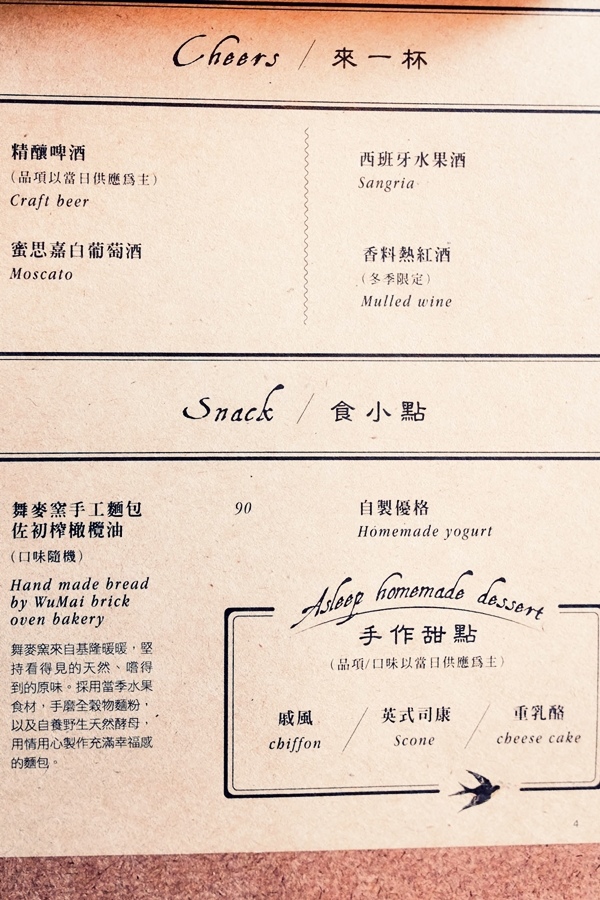 Cheers / 來一杯
精釀啤酒
(品項以當日供應爲主)
Craft beer
蜜思嘉白葡萄酒
Moscato
西班牙水果酒
Sangria
香料熱紅酒
(冬季限定)
Mulled wine
Snack / 食小點
舞麥窯手工麵包 90
佐初榨橄欖油
(口味隨機)
Hand made bread
by WuMai brick
oven bakery
舞麥窯來自基隆暖暖，堅
持看得見的天然、嚐得
到的原味。採用當季水果
食材，手磨全穀物麵粉，
以及自養野生天然酵母，
用情用心製作充滿幸福感
的麵包。
自製優格
Homemade yogurt
Asleep homemade dessert
手作甜點
(品項/口味以當日供應爲主)
戚風
chiffon
/
英式司康
Scone
/
重乳酪
cheese cake
4